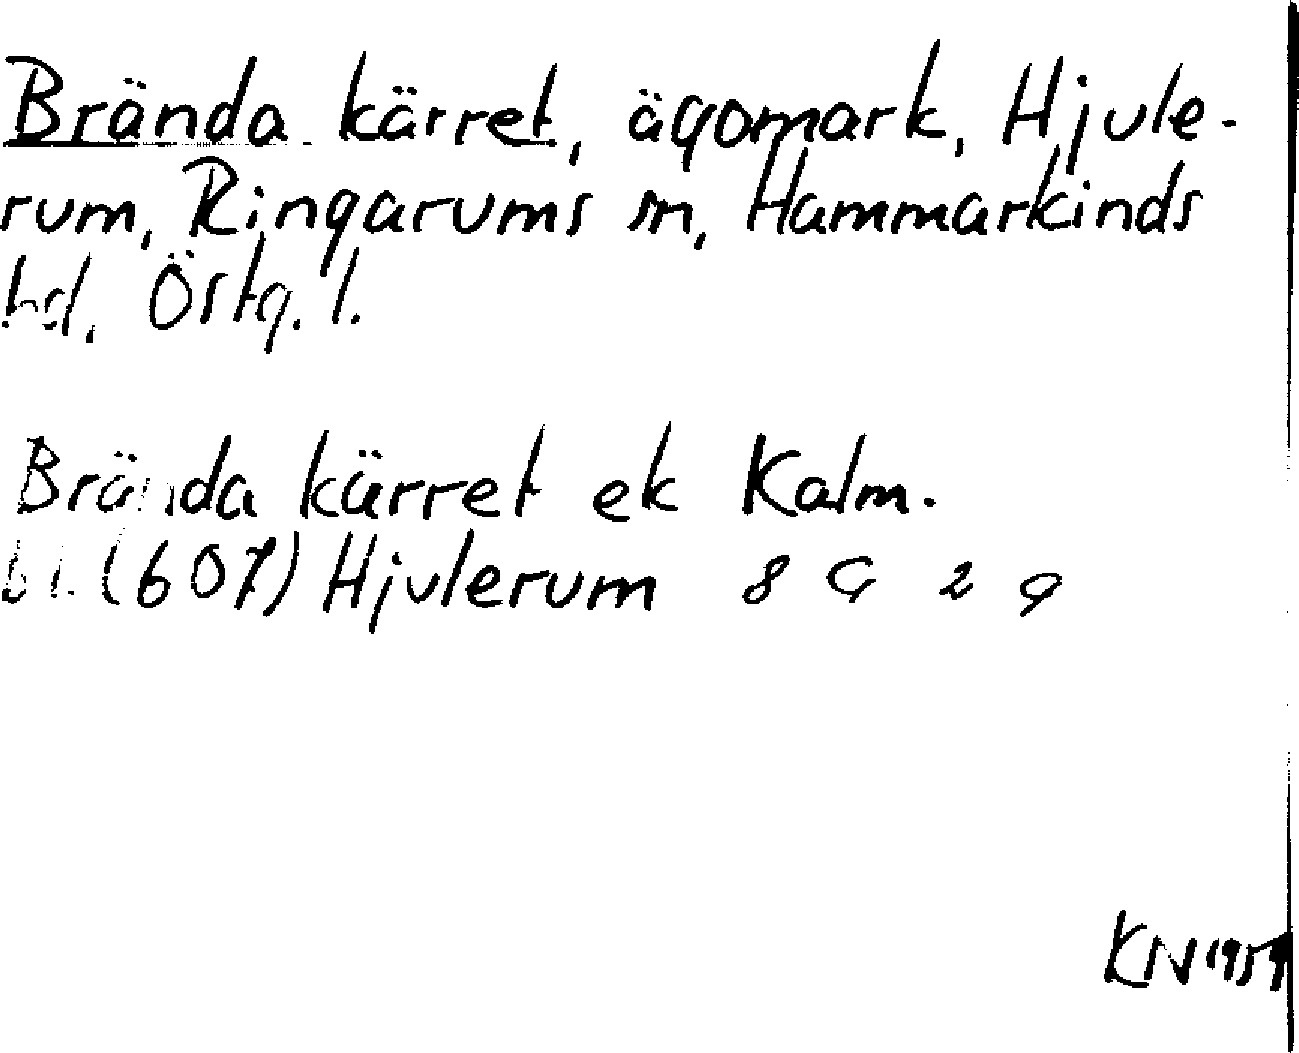 Brända kärret, ägomark, Hjule-
rum, Ringarums sn, Hammarkinds
hd. Östg. l.
Brända kärret ek Kalm.
bl. (607) Hjulerum 8 G 2 g
KN 1959